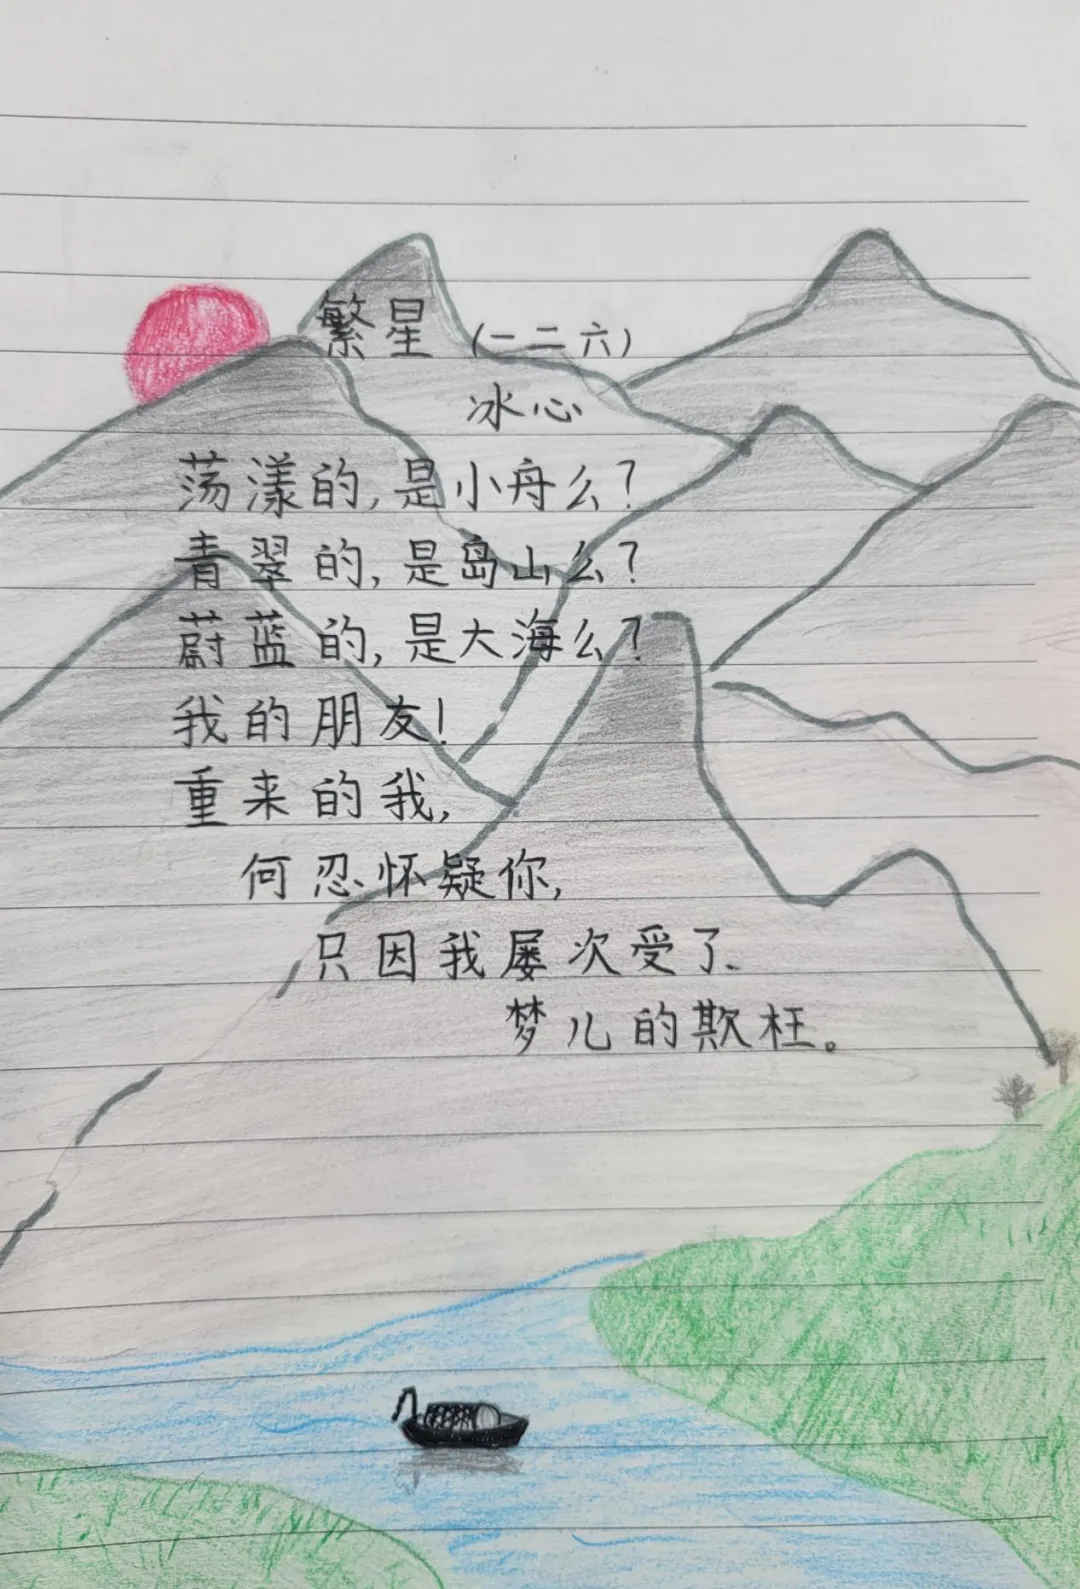 繁星（一二六）
冰心
荡漾的,是小舟么?
青翠的,是岛山么?
蔚蓝的,是大海么?
我的朋友!
重来的我,
何忍怀疑你,
只因我屡次受了
梦儿的欺枉。